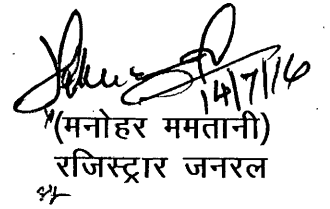 14/7/16
(मनोहर ममतानी)
रजिस्ट्रार जनरल